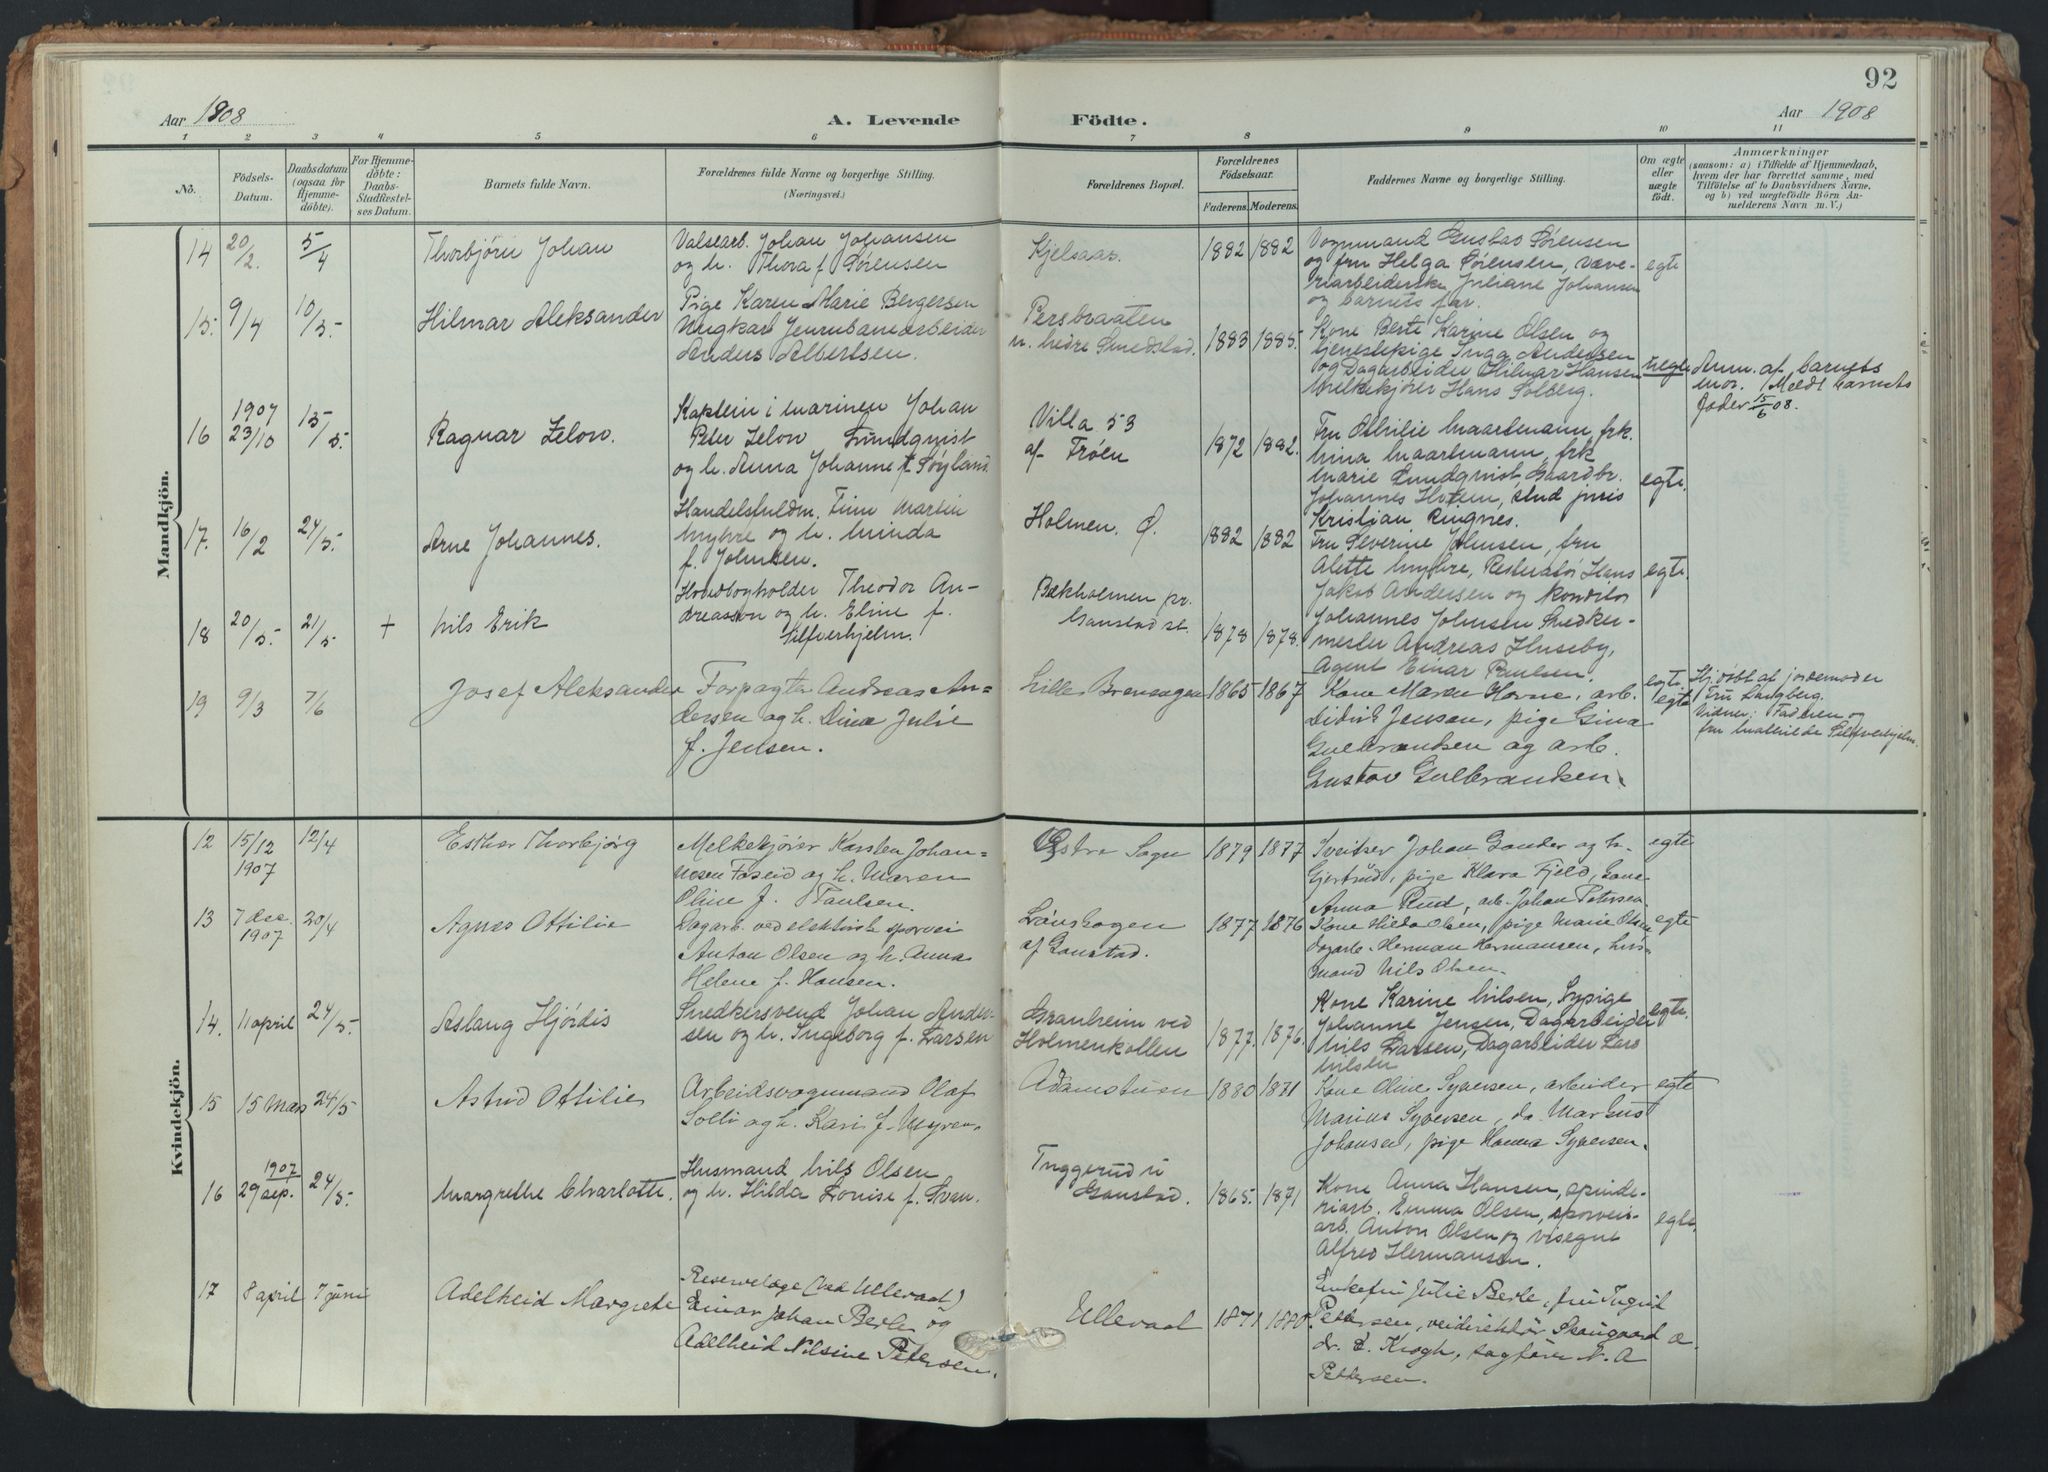 92
Aar 1908
A. Levende
Födte.
Aar 1908
1 2 3 4 5 6 7 8 9 10 11
No.
Födsels-
Datum.
Daabsdatum
(ogsaa for
Hjemme-
döbte).
For Hjemme-
döbte:
Daabs-
Stadfæstel-
ses Datum.
Barnets fulde Navn.
Forældrenes fulde Navne og borgerlige Stilling.
(Næringsvei.)
Forældrenes Bopæl.
Forældrenes
Födselsaar.
Faderens. Moderens.
Faddernes Navne og borgerlige Stilling.
Om ægte
eller
uægte
födt.
Anmærkninger
(saasom: a) i Tilfælde af Hjemmedaab,
hvem der har forrettet samme, med
Tilföielse af to Daabsvidners Navne,
og b) ved uægtefödte Börn An-
melderens Navn m. V.)
Mandkjön.
14 20/2. 5/4 Thorbjörn Johan
Valsearb. Johan Johansen
og h. Thora f. Sørensen
Kjelsaas. 1882 1882
Vognmand Gustav Sørensen
og fru Helga Sørensen, væve-
riarbeiderske Juliane Johansen
og barnets far.
egte
15. 9/4 10/5. Hilmar Aleksander
Pige Karen Marie Bergersen
Ungkarl Jernbanearbeider
Anders Albertsen.
Persbraaten
u. nedre Smedstad. 1883 1885.
Kone Berte Karine Olsen og
tjenestepige Inga Andersen
og Dagarbeider Hilmar Hansen
Melkekjører Hans Solberg.
uegte
Anm. af barnets
mor. / Meldt barnets
Fader 15/6 08.
16 1907 23/10 15/5. Ragnar Zelow.
Kaptein i marinen Johan
Peter Zelow Lundqvist
og h. Anna Johanne f. Søyland.
Villa 53
af Frøen 1872 1882.
Fru Othilie Maartmann, frk.
Mina Maartmann, frk
Marie Lundqvist, Gaardbr.
Johannes Holtem, stud juris
Kristian Ringnes.
egte.
17. 16/2 24/5. Arne Johannes.
Handelsfuldm. Finn Martin
Myhre og h. Minda
f. Johnsen.
Holmen. Ø. 1882 1882
Fru Severine Johnsen, fru
Alette Myhre, Restauratør Hans
Jakob Andersen og Konditor
Johannes Johnsen
egte.
18 20/5. 21/5 + Nils Erik
Hovedbogholder Theodor An-
dreasson og h. Eline f.
Silfverhjelm.
Bekholmen pr.
Gaustad st. 1878 1878.
Snedker-
mester Andreas Huseby,
Agent Einar Paulsen.
egte
Hj.døbt af jordemoder
Fru Langberg.
Vidner: Faderen og
fru Mathilde Silfverhjelm.
19 9/3 7/6 Josef Aleksander
Forpagter Andreas An=
dersen og h. Dina Julie
f. Jensen.
Lille Brenengen 1865 1867
Kone Maren Horne, arb.
Didrik Jensen, pige Gina
Gulbrandsen og arb.
Gustav Gulbrandsen.
egte
Kvindekjön.
12 15/12 1907 12/4 Esther Thorbjørg
Melkekjører Karsten Johan=
nesen Foseid og h. Maren
Oline f. Paulsen.
Østre Sogn 1879 1877
Sveitser Johan Gander og h.
Gjertrud, pige Klara Fjeld, Kone
Anna Rud, arb. Johan Petersen
egte
13 7 dec. 1907 20/4 Agnes Ottilie
Dagarb. ved elektrisk sporvei
Anton Olsen og h. Anna
Helene f. Hansen.
Lønshagen
af Gaustad. 1877 1876
Kone Hilda Olsen, pige Marie Olsen
dagarb. Herman Hermansen, hus-
mand Nils Olsen.
egte
14. 11 april 24/5. Aslaug Hjördis
Snedkersvend Johan Ander-
sen og h. Ingeborg f. Larsen
Granheim ved
Holmenkollen 1877. 1876.
Kone Karine Nilsen, Sypige
Johanne Jensen, Dagarbeider
Nils Larsen, Dagarbeider Lars
Nilsen
egte.
15 15 Mars 24/5 Astrid Ottilie
Arbeidsvognmand Olaf
Solli og h. Kari f. Myren.
Adamstuen 1880 1871
Kone Oline Syversen, arbeider
Marius Syversen, do. Markus
Johansen, pige Hanna Syversen.
egte
16 1907 29 sep. 24/5. Margrethe Charlotte.
Husmand Nils Olsen
og h. Hilda Lovise f. Svan.
Tuggerud u
Gaustad. 1865. 1871
Kone Anna Hansen, spinde-
riarb. Emma Olsen, sporveis-
arb. Anton Olsen og visegut
Alfred Hermansen.
egte.
17 8 april 7 juni Adelheid Margrete
Reservelæge (ved Ullevaal)
Einar Johan Berle og
Adelheid Nilsine Petersen.
Ullevaal 1871 1880
Enkefru Julie Berle, fru Ingrid
Pettersen, veidirektør Skougaard
dr. L. Krogh, sagfører N. A
Pettersen.
æ.